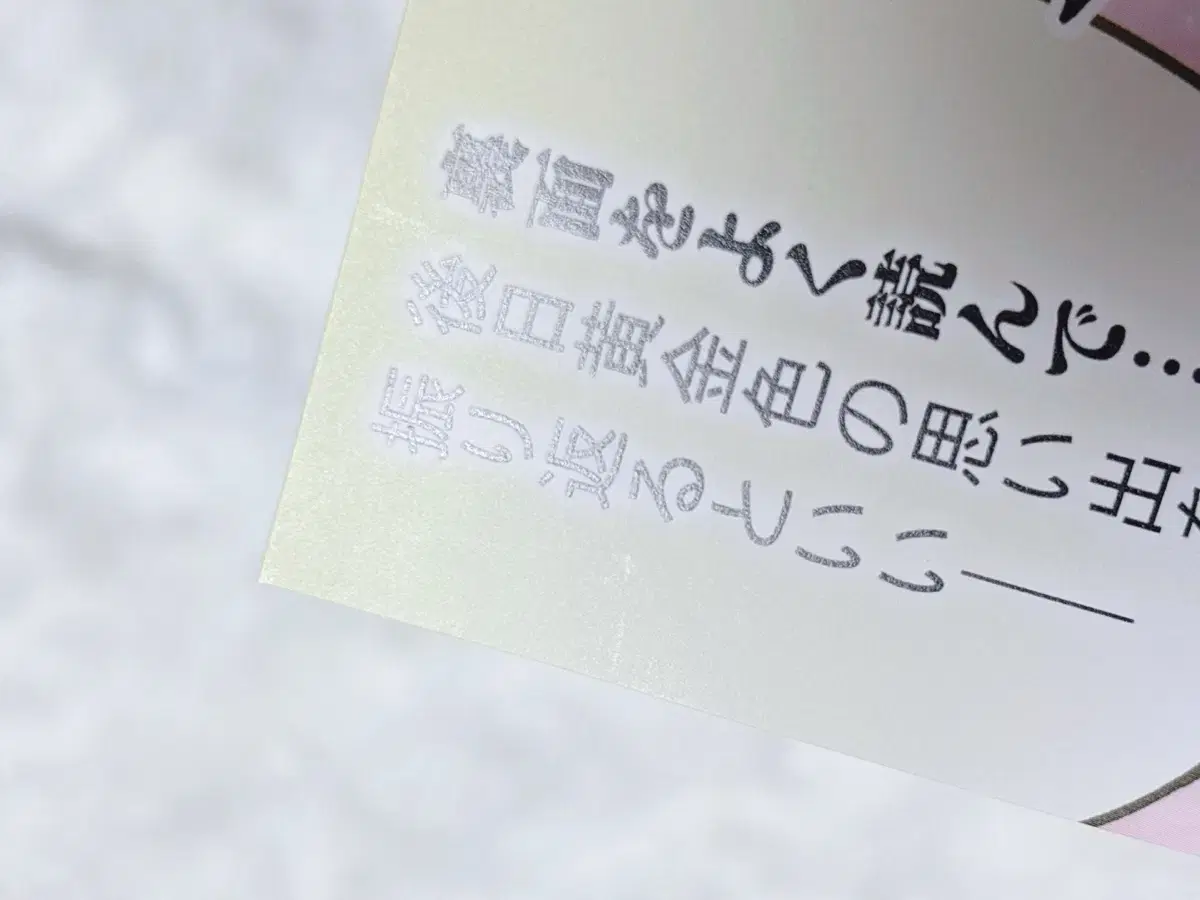 裏面をよく読んで…
後日黄金色の思い出
振り返るといい―